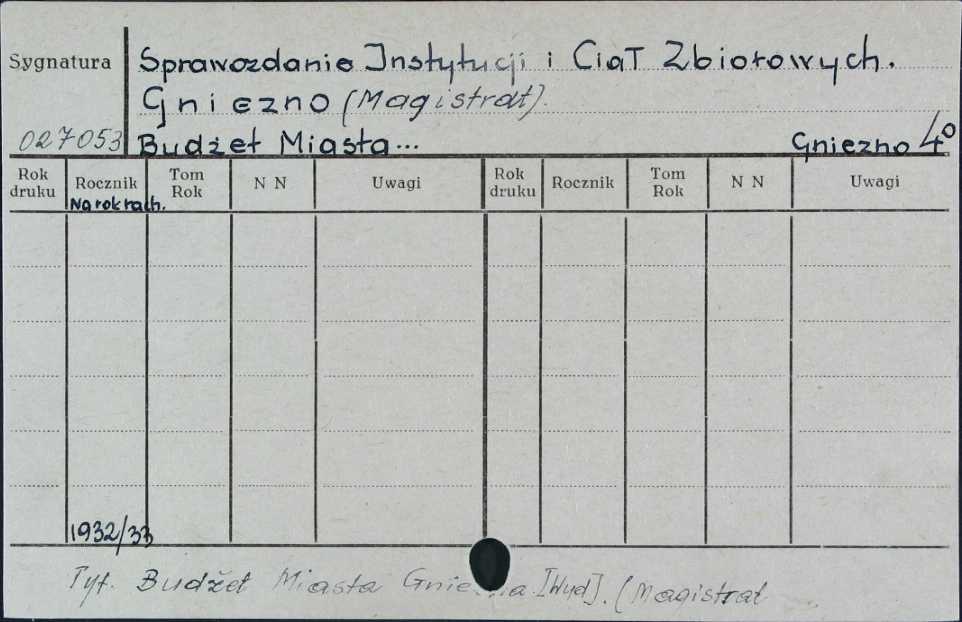 Sygnatura
Sprawozdanie Instytucji i Ciał Zbiorowych.
Gniezno (Magistrat).
027053 Budżet Miasta... Gniezno 4°
Rok druku Rocznik Tom Rok N N Uwagi Rok druku Rocznik Tom Rok N N Uwagi
Na rok rach.
1932/33
Tyt. Budżet Miasta [Wyd]. (Magistrat